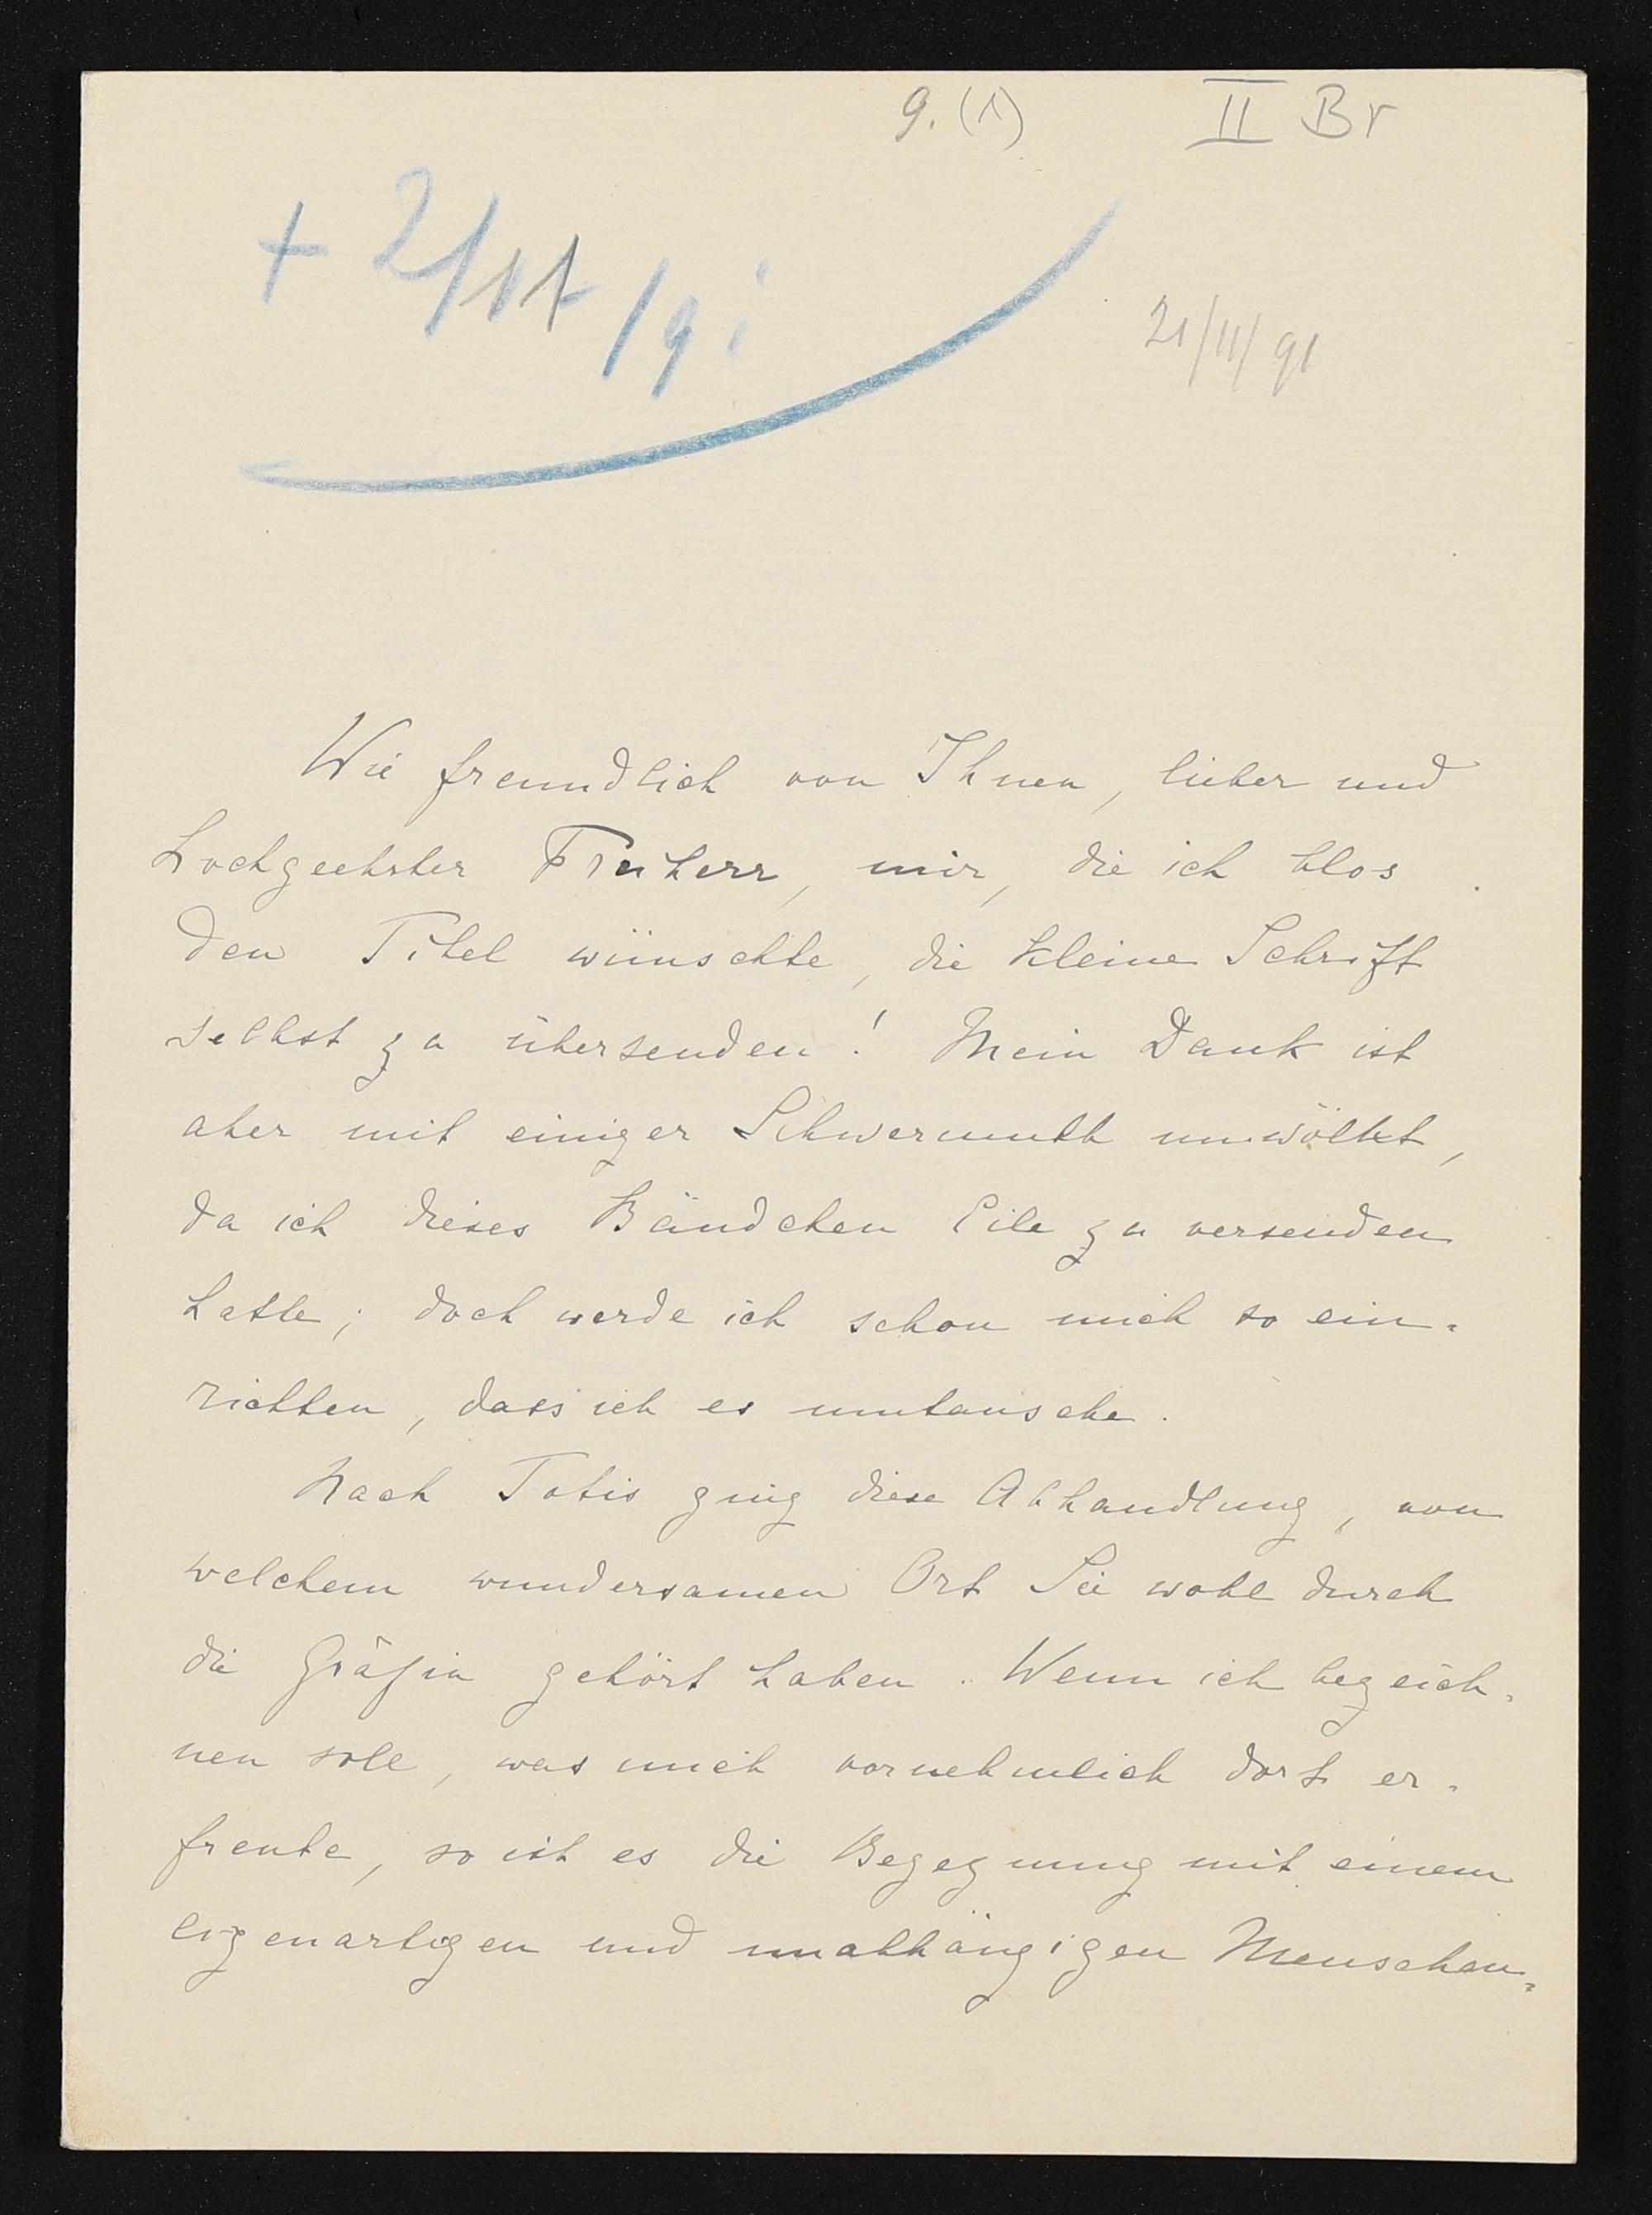 9. (1) II Br
+ 2/11/91
21/11/91
Wie freundlich von Ihnen, lieber und
hochgeehrter Freiherr, mir, die ich blos
den Titel wünschte, die kleine Schrift
selbst zu übersenden! Mein Dank ist
aber mit einiger Schwermuth umwölkt,
da ich dieses Bändchen Eile zu versenden
hatte; doch werde ich schon mich so ein=
richten, dass ich es umtausche.
Nach Totis ging diese Abhandlung, von
welchem wundersamen Ort Sie wohl durch
die Gräfin gehört haben. Wenn ich bezeich=
nen soll, was mich vornehmlich dort er=
freute, so ist es die Begegnung mit einem
eigenartigen und unabhängigen Menschen=